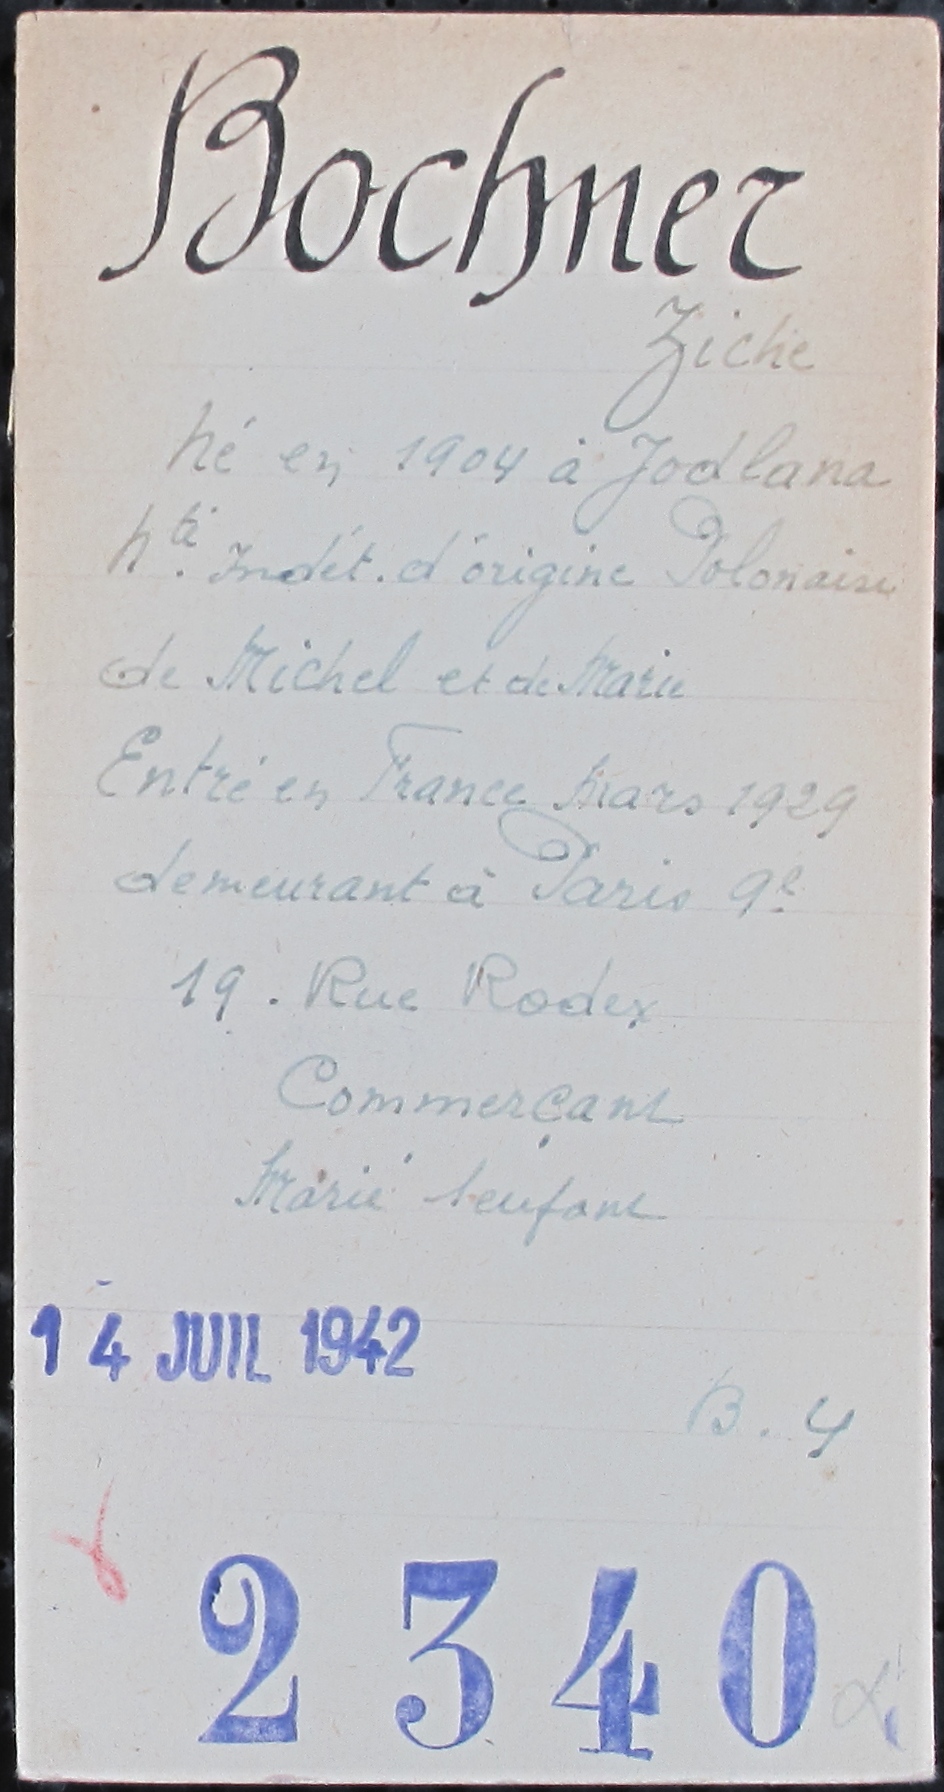 Bochner
Ziche
Né en 1904 à Jodlana
Nté. Indét. d'origine Polonaise
de Michel et de Marie
Entré en France Mars 1929
demeurant à Paris 9e
19. Rue Rodex
Commerçant
Marié 1 enfant
14 JUIL 1942
B. 4
2340